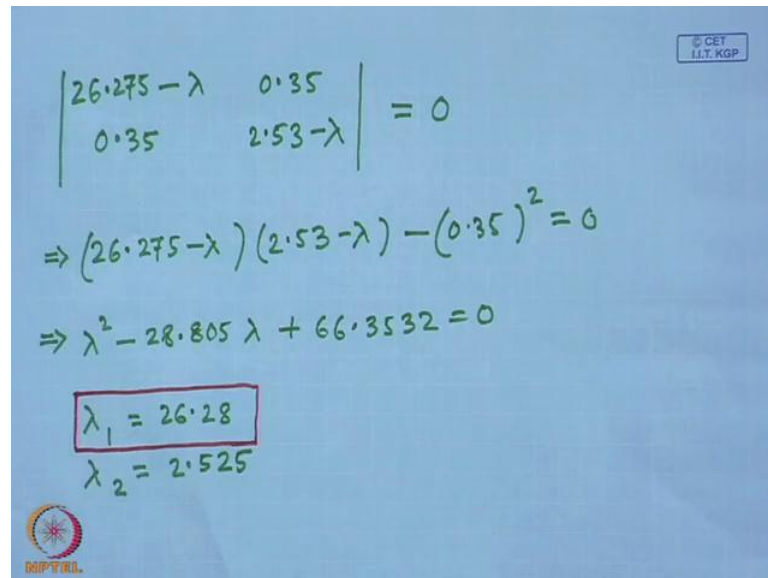 © CET
I.I.T. KGP
| 26.275 − λ   0.35 |
| 0.35   2.53 − λ | = 0
⇒ (26.275 − λ) (2.53 − λ) − (0.35)² = 0
⇒ λ² − 28.805 λ + 66.3532 = 0
λ₁ = 26.28
λ₂ = 2.525
NPTEL